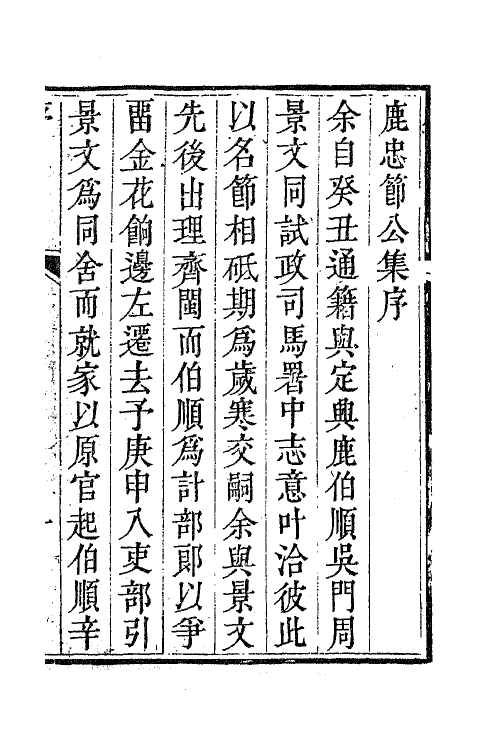 鹿忠節公集序
余自癸丑通籍與定興鹿伯順吳門周
景文同試政司馬署中志意叶洽彼此
以名節相砥期爲歲寒交嗣余與景文
先後出理齊閩而伯順爲計部郞以爭
畱金花餉邊左遷去予庚申入吏部引
景文爲同舍而就家以原官起伯順辛